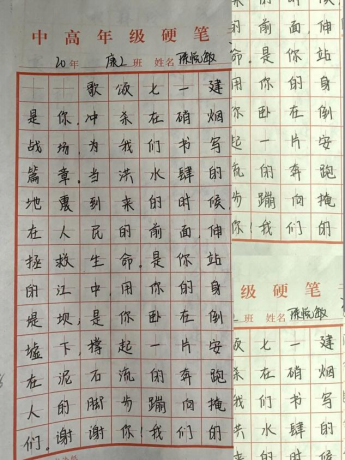 中高年级硬笔
20年 康2班 姓名
歌颂七一建
是你,冲杀在硝烟
战场,为我们书写
篇章,当洪水肆的
地震到来的时候
在人民的前面,伸
拯救生命,是你站
的江中,用你的身
堤坝,是你卧在倒
墟下,撑起一片安
在泥石流的奔跑
人的脚步蹦向掩
们。谢谢你!我们的
的前面,伸
是你站
用你的身
你卧在倒
起一片安
流的奔跑
步蹦向掩
你!我们的
级硬笔
班 姓名
七一建
杀在硝烟
我们书写
洪水肆的
来的时候